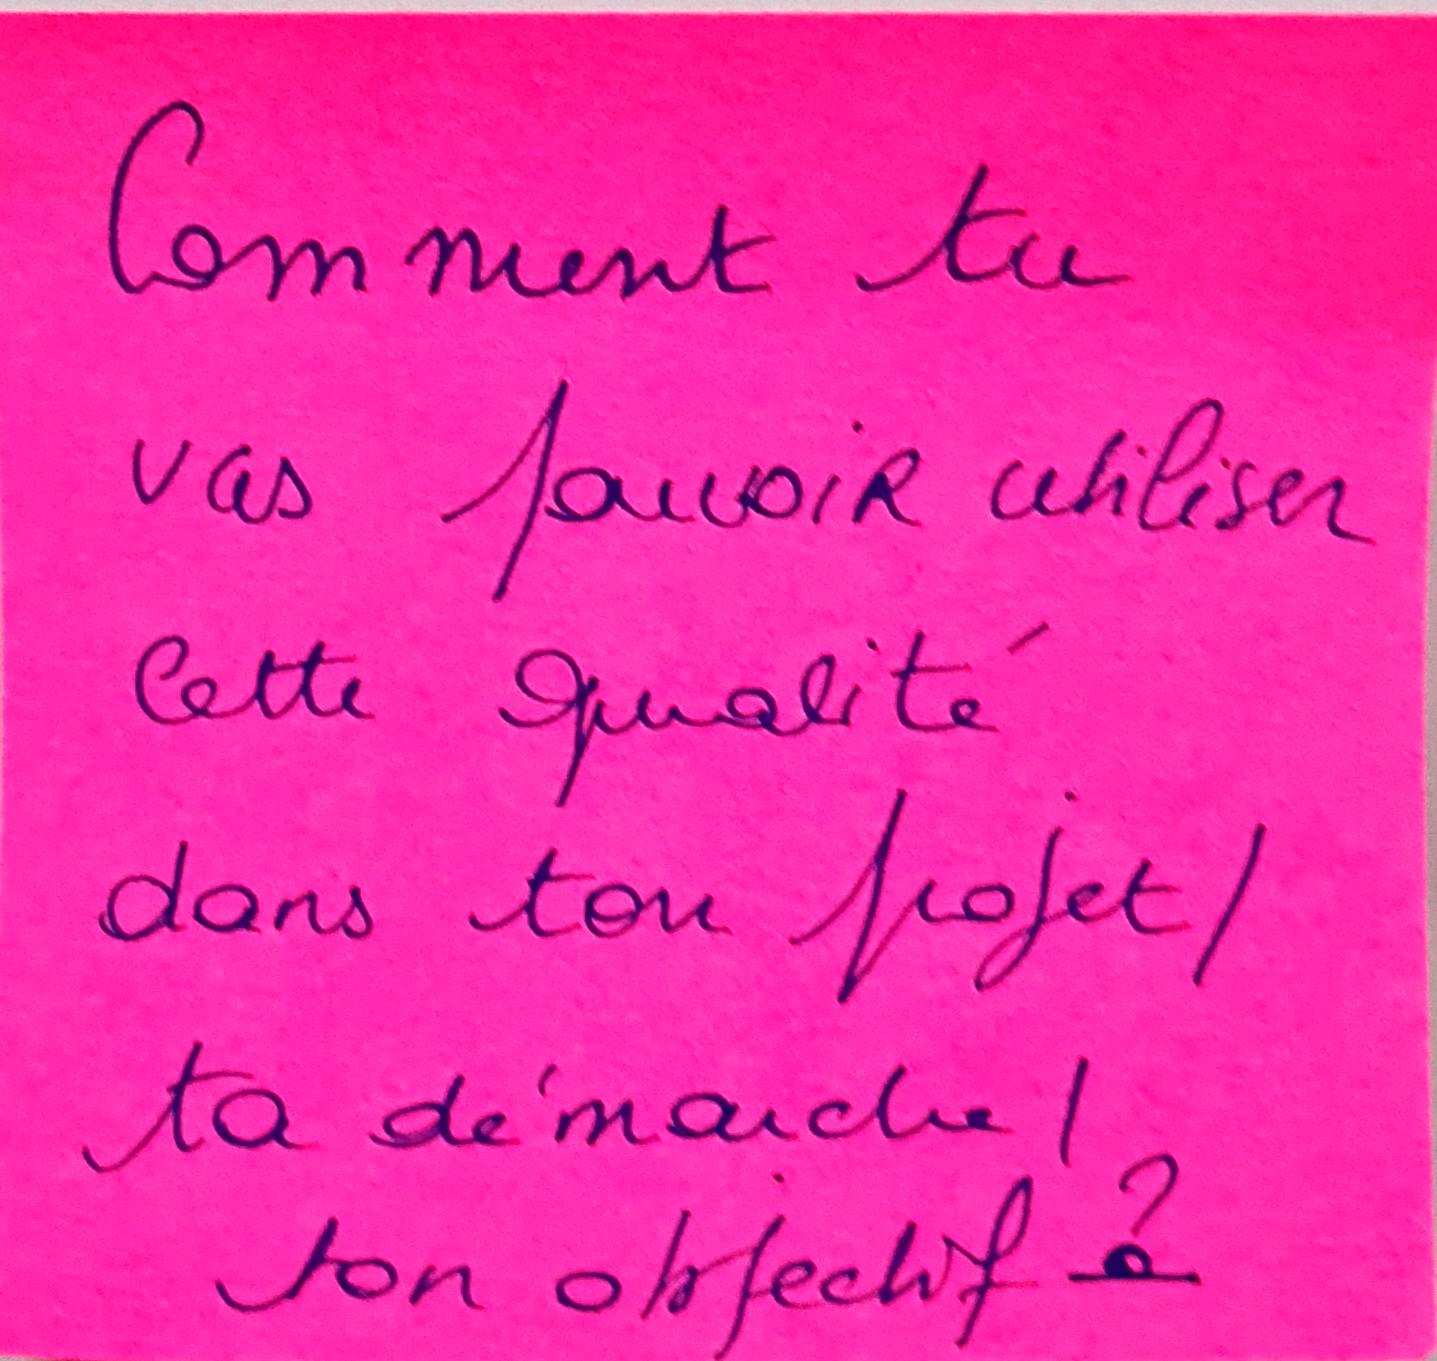 Comment tu
vas pouvoir utiliser
cette qualité
dans ton projet/
ta démarche/
ton objectif ?